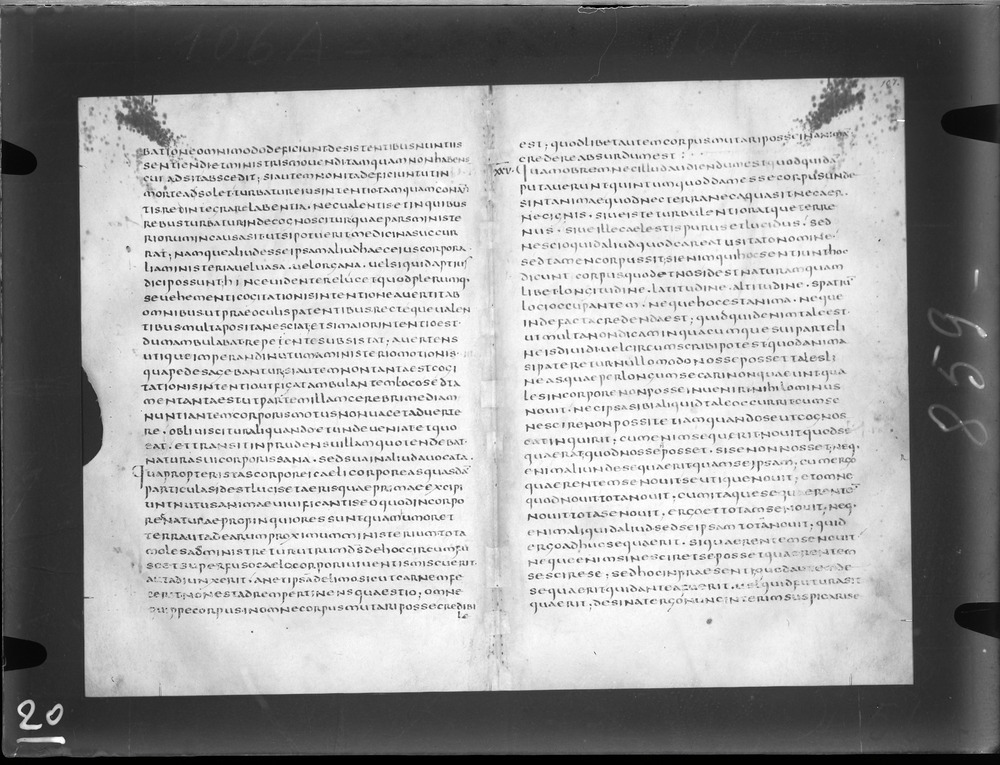 BATIONE OMNIMODO DEFICIUNT DESISTENTIBUS NUNTIIS
SENTIENDI ET MINISTRIS MOVENDI TAMQUAM NON HABENS
CUR ADSIT ABSCEDIT; SI AUTEM NON ITA DEFICIUNT UT IN
MORTE ADSOLET TURBATUR EIUS INTENTIO TAMQUAM CONAN
TIS REDINTEGRARE LABENTIA · NEC VALENTIS ET IN QUIBUS
REBUS TURBATUR INDE COGNOSCITUR QUAE PARS MINISTE
RIORUM IN CAUSA SIT UT SI POTUERIT MEDICINA SUCCUR
RAT; NAMQUE ALIUD ESSE IPSAM ALIUD HAEC EIUS CORPORA
LIA MINISTERIA VEL VASA · VEL ORGANA · VEL SI QUID APTIUS
DICI POSSUNT; HINC EVIDENTER ELUCET QUOD PLERUMQ·
SE VEHEMENTI COGITATIONIS INTENTIONE AVERTIT AB
OMNIBUS UT PRAE OCULIS PATENTIBUS RECTEQUE VALEN
TIBUS MULTA POSITA NESCIAT; ET SI MAIOR INTENTIO EST·
DUM AMBULABAT REPENTE SUBSISTAT; AVERTENS
UTIQUE IMPERANDI NUTUM A MINISTERIO MOTIONIS·
QUA PEDES AGEBANTUR; SI AUTEM NON TANTA EST COGI
TATIONIS INTENTIO UT FIGAT AMBULANTEM LOCO SED TA
MEN TANTA EST UT PARTEM ILLAM CEREBRI MEDIAM
NUNTIANTEM CORPORIS MOTUS NON VACET ADVERTE
RE · OBLIVISCITUR ALIQUANDO ET UNDE VENIAT ET QUO
EAT · ET TRANSIT INPRUDENS VILLAM QUO TENDEBAT·
NATURA SUI CORPORIS SANA · SED SUA IN ALIUD AVOCATA·
QUAPROPTER ISTAS CORPOREI CAELI CORPOREAS QUASDĀ
PARTICULAS ID EST LUCIS ET AERIS QUAE PRIMAE EXCIPI
UNT NUTUS ANIMAE VIVIFICANTIS EO QUOD INCORPO
REAE NATURAE PROPINQUIORES SUNT QUAM UMOR ET
TERRA UT ADEARUM PROXIMUM MINISTERIUM TOTA
MOLES ADMINISTRETUR UTRUM DS DE HOC CIRCUMFU
SO ET SUPERFUSO CAELO CORPORI VIVENTIS MISCUERIT·
AUT ADIUNXERIT · AN ET IPSA DE LIMO SICUT CARNEM FE
CERIT NON EST AD REM PERTINENS QUAESTIO; OMNE
QUIPPE CORPUS IN OMNE CORPUS MUTARI POSSE CREDIBI
LE
107.
EST; QUODLIBET AUTEM CORPUS MUTARI POSSE IN ANIMĀ
CREDERE ABSURDUM EST:
XXV· QUAMOBREM NEC ILLUD AUDIENDUM EST QUOD QUIDA
PUTAVERUNT QUINTUM QUODDAM ESSE CORPUS UNDE
SINT ANIMAE QUOD NEC TERRA NEC AQUA SIT NEC AER·
NEC IGNIS · SIVE ISTE TURBULENTIOR ATQUE TERRE
NUS · SIVE ILLE CAELESTIS PURUS ET LUCIDUS · SED
NESCIO QUID ALIUD QUOD CAREAT USITATO NOMINE·
SED TAMEN CORPUS SIT; SI ENIM QUI HOC SENTIUNT HOC
DICUNT CORPUS QUOD ET NOS ID EST NATURAM QUAM
LIBET LONGITUDINE · LATITUDINE · ALTITUDINE · SPATIŪ
LOCI OCCUPANTEM · NEQUE HOC EST ANIMA · NEQUE
INDE FACTA CREDENDA EST; QUIDQUID ENIM TALE EST·
UT MULTA NON DICAM IN QUACUMQUE SUI PARTE LI
NEIS DIVIDI VEL CIRCUMSCRIBI POTEST QUOD ANIMA
SI PATERETUR NULLO MODO NOSSE POSSET TALES LI
NEAS QUAE PER LONGUM SECARI NON QUEUNT QUA
LES IN CORPORE NON POSSE INVENIRI NIHILOMINUS
NOVIT · NEC IPSA SIBI ALIQUID TALE OCCURRIT CUM SE
NESCIRE NON POSSIT ETIAM QUANDO SE UT COGNOS
CAT INQUIRIT; CUM ENIM SE QUERIT NOVIT QUOD SE
QUAERAT QUOD NOSSE POSSET · SI SE NON NOSSET; NEQ·
ENIM ALIUNDE SE QUAERIT QUAM SE IPSAM; CUM ERGO
QUAERENTEM SE NOVIT SE UTIQUE NOVIT; ET OMNE
QUOD NOVIT TOTA NOVIT; CUM ITAQUE SE QUAERENTĒ
NOVIT TOTA SE NOVIT; ERGO ET TOTAM SE NOVIT; NEQ·
ENIM ALIQUID ALIUD SED SE IPSAM TOTA NOVIT; QUID
ERGO ADHUC SE QUAERIT · SI QUAERENTEM SE NOVIT·
NEQUE ENIM SI NESCIRET SE POSSET QUAERENTEM
SE SCIRE SE; SED HOC IN PRAESENTI; QUOD AUTEM DE
SE QUAERIT QUID ANTEA FUERIT · VEL QUID FUTURA SIT
QUAERIT; DESINAT ERGO NUNC INTERIM SUSPICARI SE
859-
20